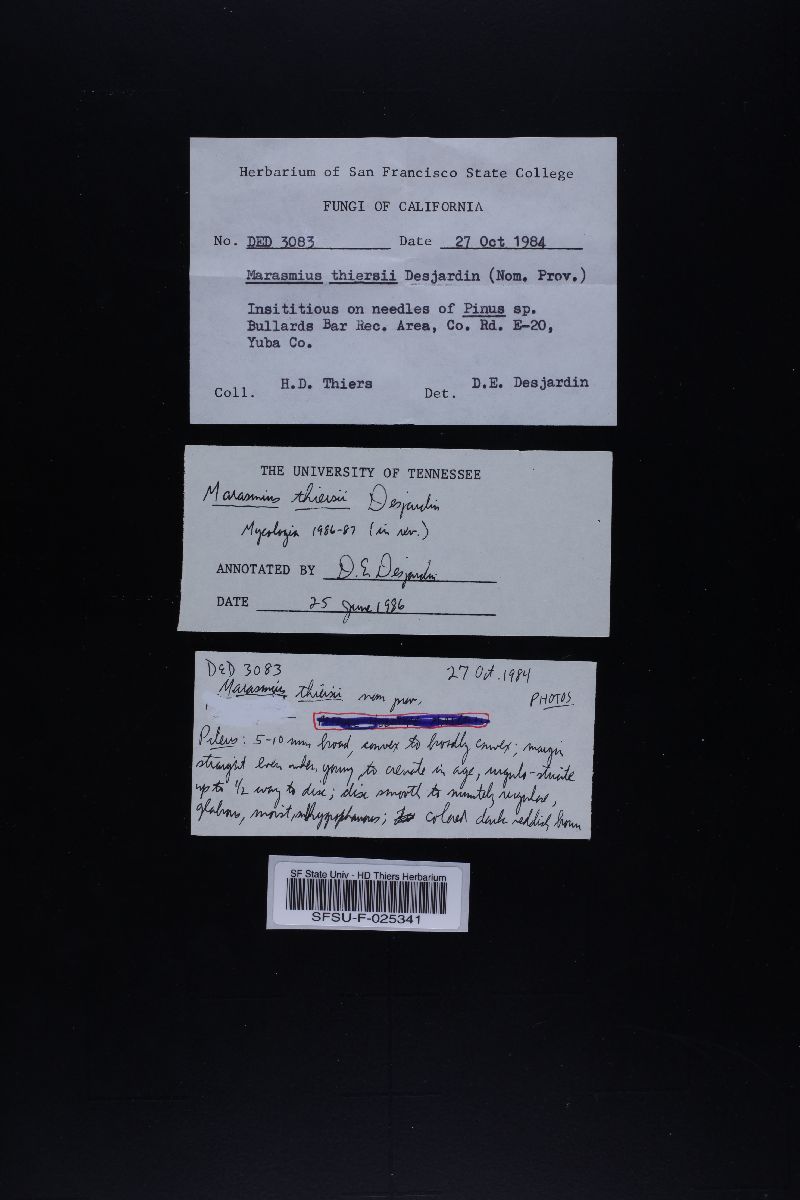 Herbarium of San Francisco State College
FUNGI OF CALIFORNIA
No. DED 3083 Date 27 Oct 1984
Marasmius thiersii Desjardin (Nom. Prov.)
Insititious on needles of Pinus sp.
Bullards Bar Rec. Area, Co. Rd. E-20,
Yuba Co.
Coll. H.D. Thiers Det. D.E. Desjardin
THE UNIVERSITY OF TENNESSEE
Marasmius thiersii Desjardin
Mycologia 1986-87 (in rev.)
ANNOTATED BY D.E. Desjardin
DATE 25 June 1986
DED 3083 27 Oct. 1984
Marasmius thiersii nom prov. PHOTOS.
Pileus: 5-10 mm broad, convex to broadly convex; margin
straight even when young, to crenate in age, rugulo-striate
up to 1/2 way to disc; disc smooth to minutely rugulose,
glabrous, moist, subhygrophanous; colored dark reddish brown
SF State Univ - HD Thiers Herbarium
SFSU-F-025341